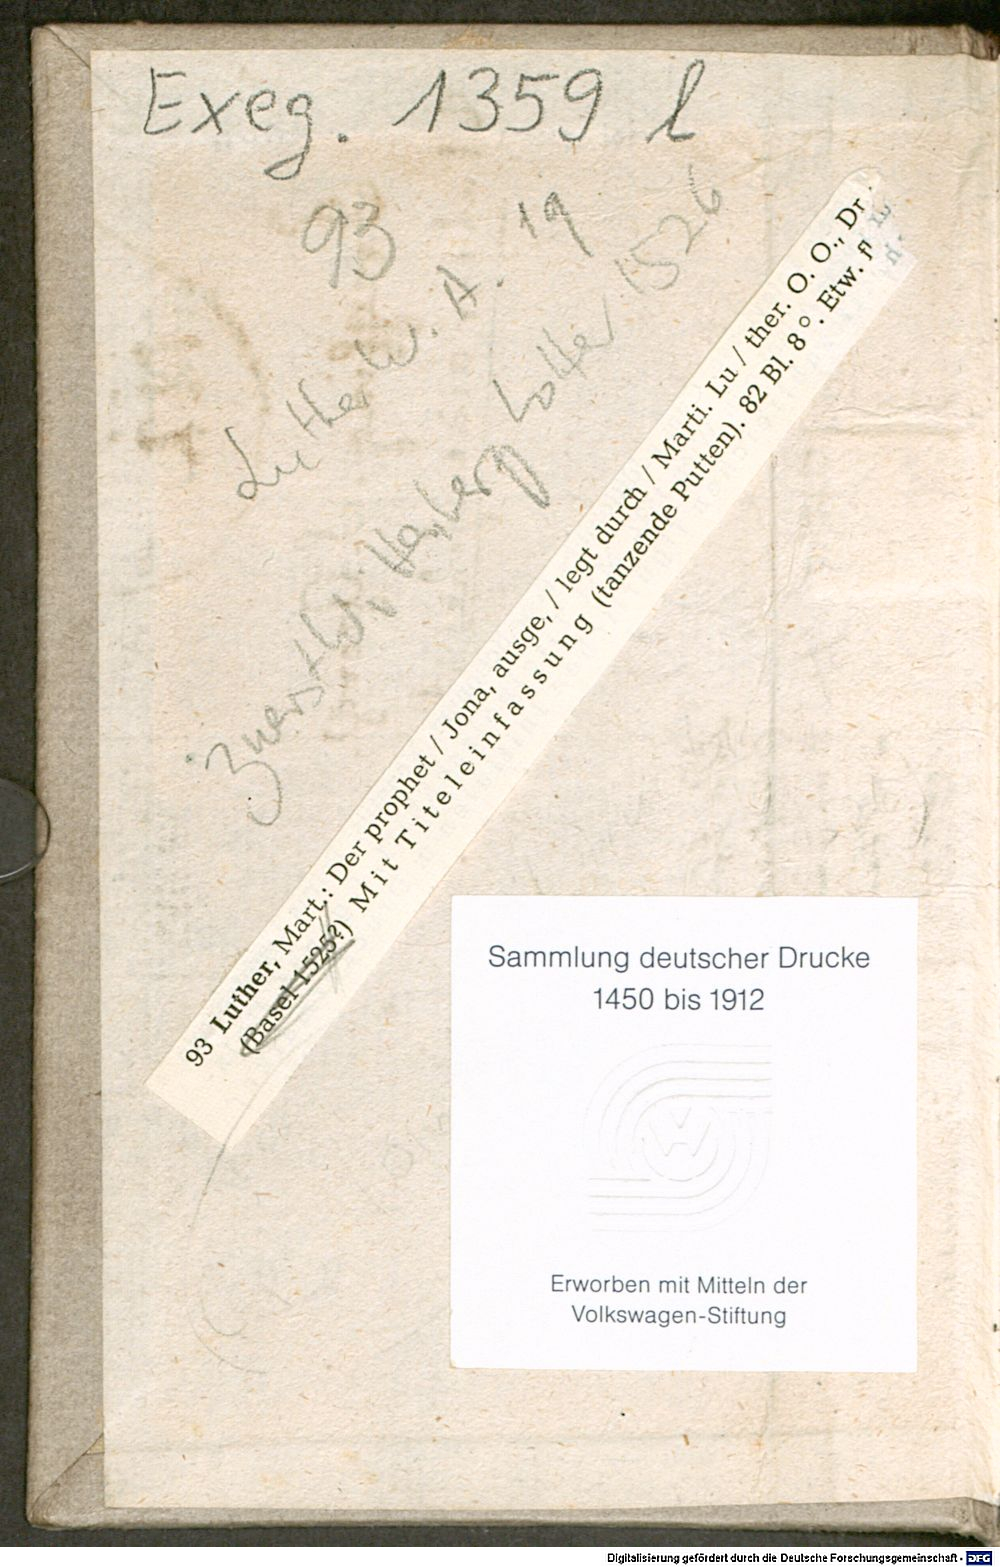 Exeg. 1359 l
93
Luther W. A. 19
Zuerst Wittenberg Lotter 1526
93 Luther, Mart.: Der prophet / Jona, ausge, / legt durch / Marti. Lu / ther. O. O., Dr
(Basel 1525?) Mit Titeleinfassung (tanzende Putten). 82 Bl. 8°. Etw. fl
Sammlung deutscher Drucke
1450 bis 1912
Erworben mit Mitteln der
Volkswagen-Stiftung
Digitalisierung gefördert durch die Deutsche Forschungsgemeinschaft - DFG